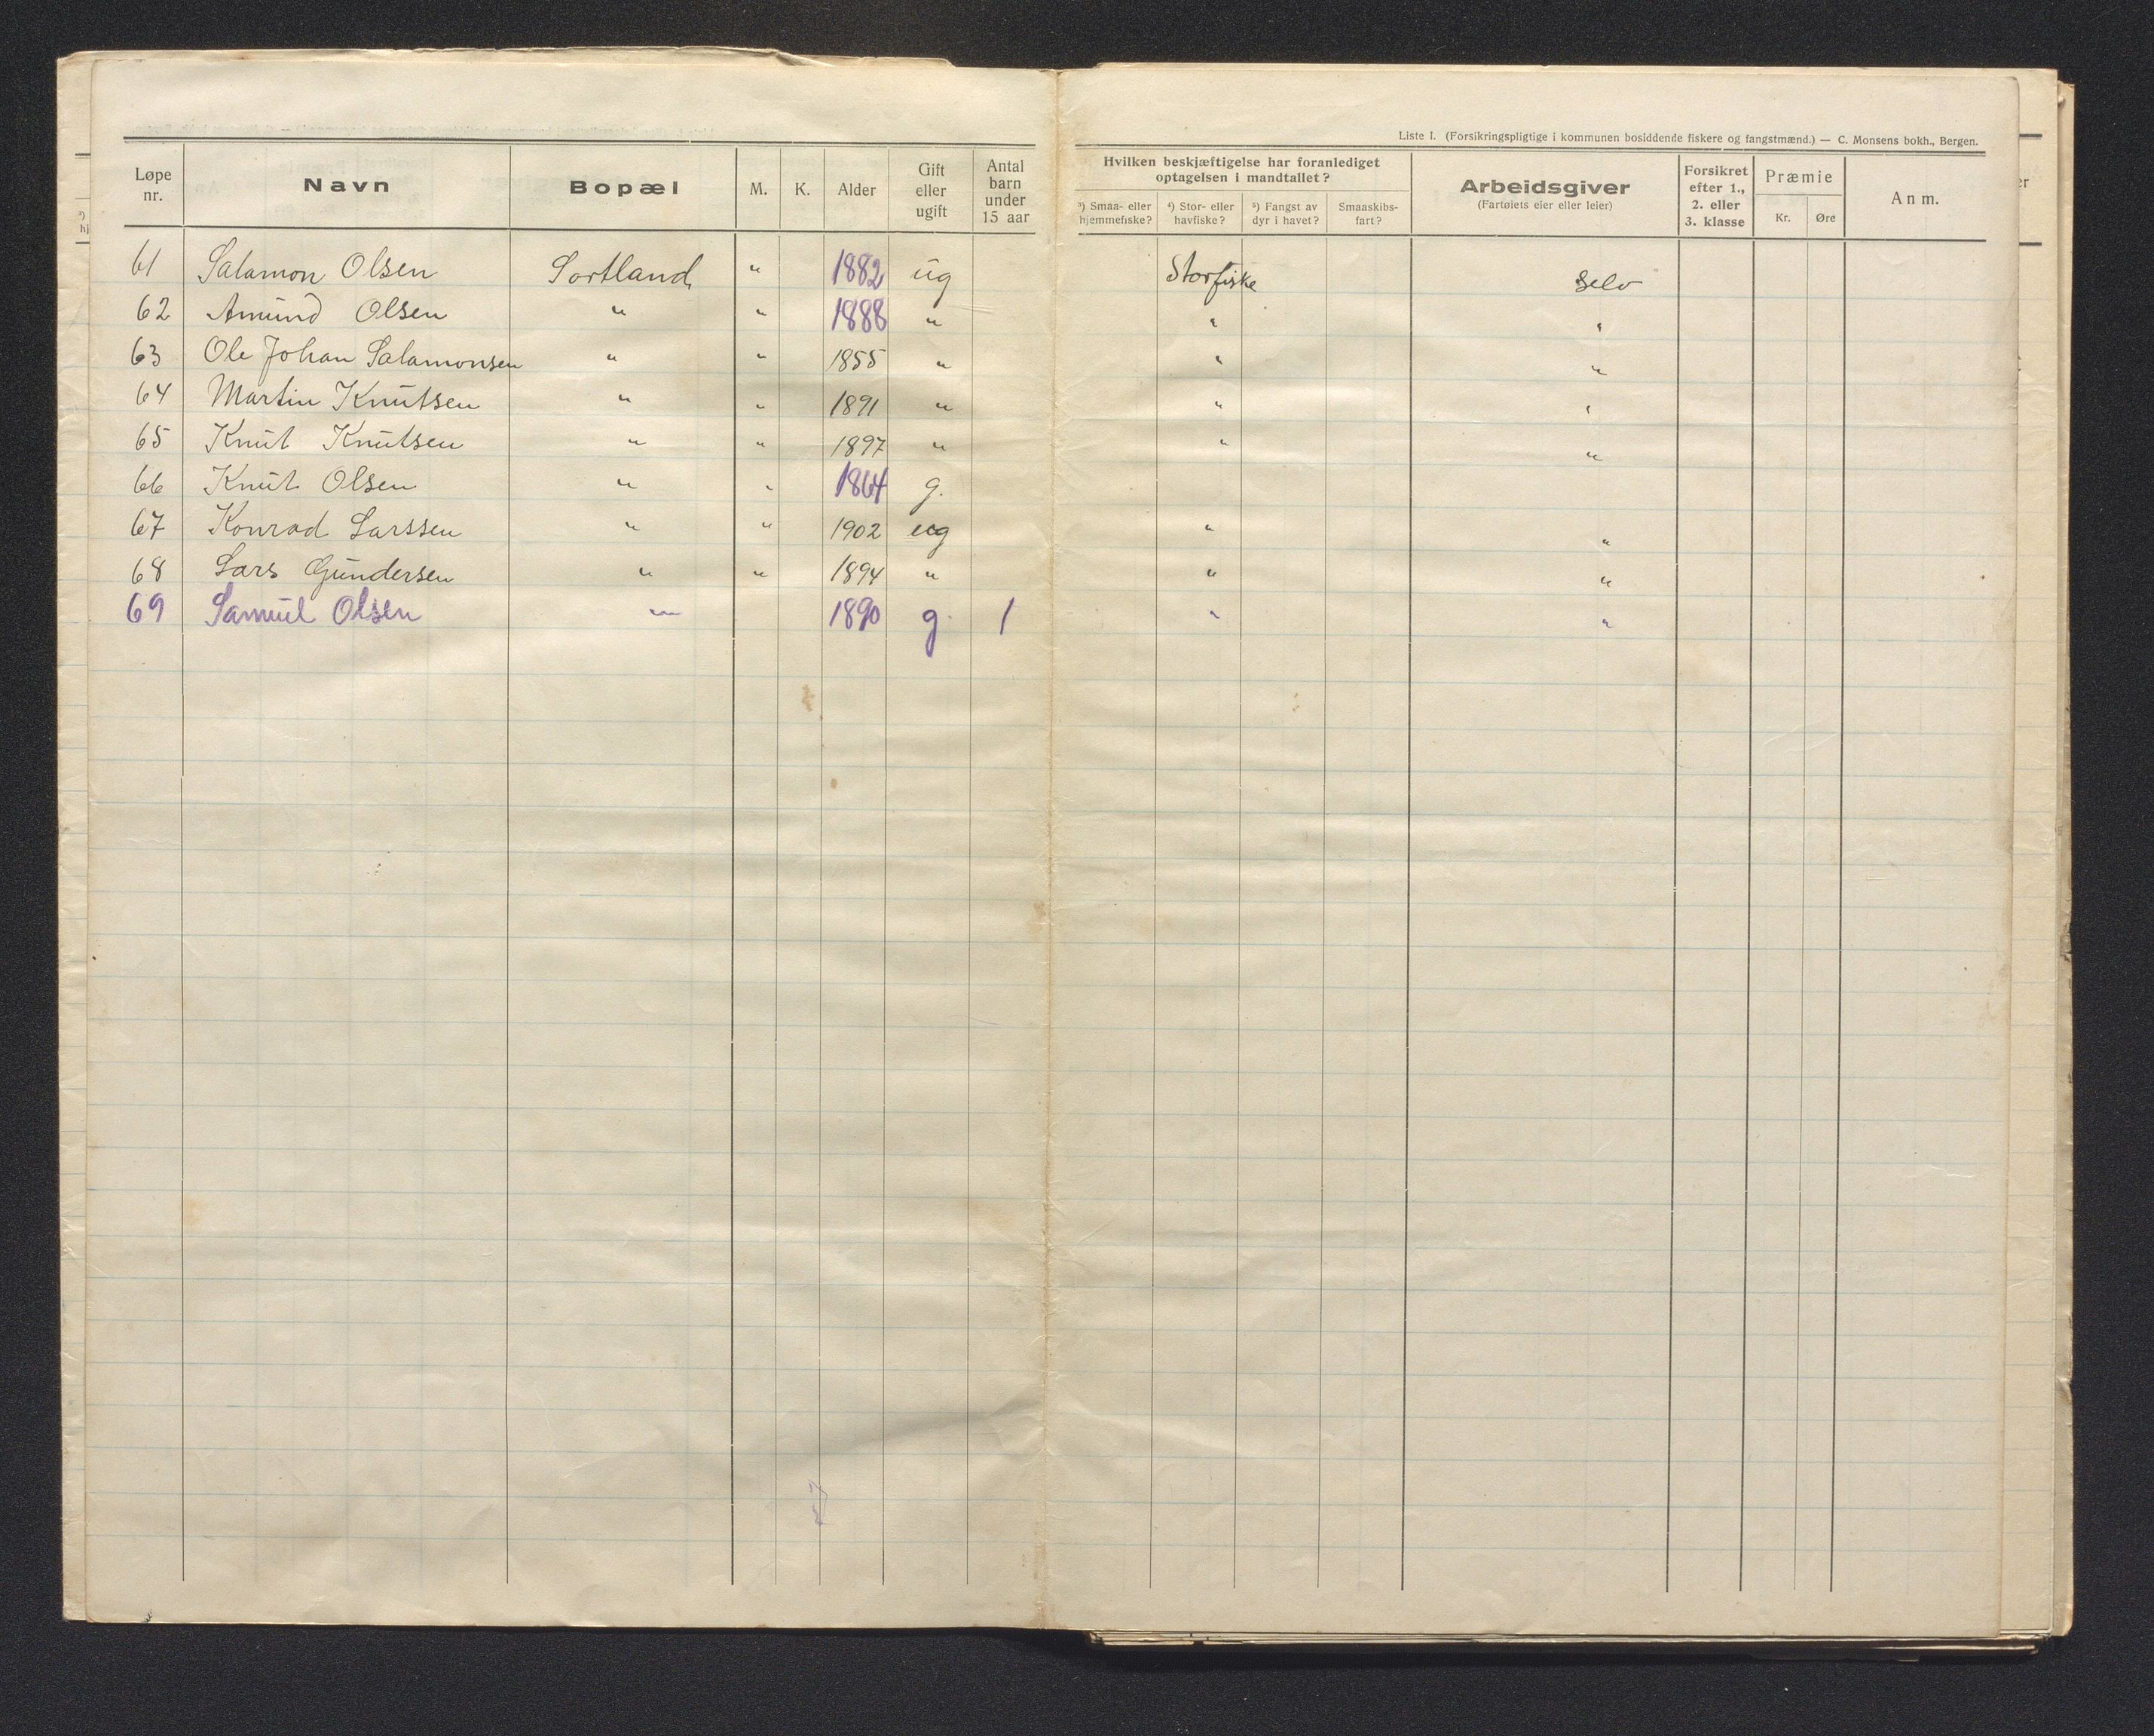 Liste I. (Forsikringspligtige i kommunen bosiddende fiskere og fangstmænd.) — C. Monsens bokh., Bergen.
Løpe nr. Navn Bopæl M. K. Alder Gift eller ugift Antal barn under 15 aar Hvilken beskjæftigelse har foranlediget optagelsen i mandtallet? ³) Smaa- eller hjemmefiske? ⁴) Stor- eller havfiske? ⁵) Fangst av dyr i havet? Smaaskibs-fart? Arbeidsgiver (Fartøiets eier eller leier) Forsikret efter 1., 2. eller 3. klasse Præmie Kr. Øre Anm.
61 Salamon Olsen Sortland " 1882 ug Storfiske selv
62 Amund Olsen " " 1888 " " "
63 Ole Johan Salamonsen " " 1855 " " "
64 Martin Knutsen " " 1891 " " "
65 Knut Knutsen " " 1897 " " "
66 Knut Olsen " " 1864 g.
67 Konrad Larssen " " 1902 ug " "
68 Lars Gundersen " " 1894 " " "
69 Samuel Olsen " 1890 g. 1 " "